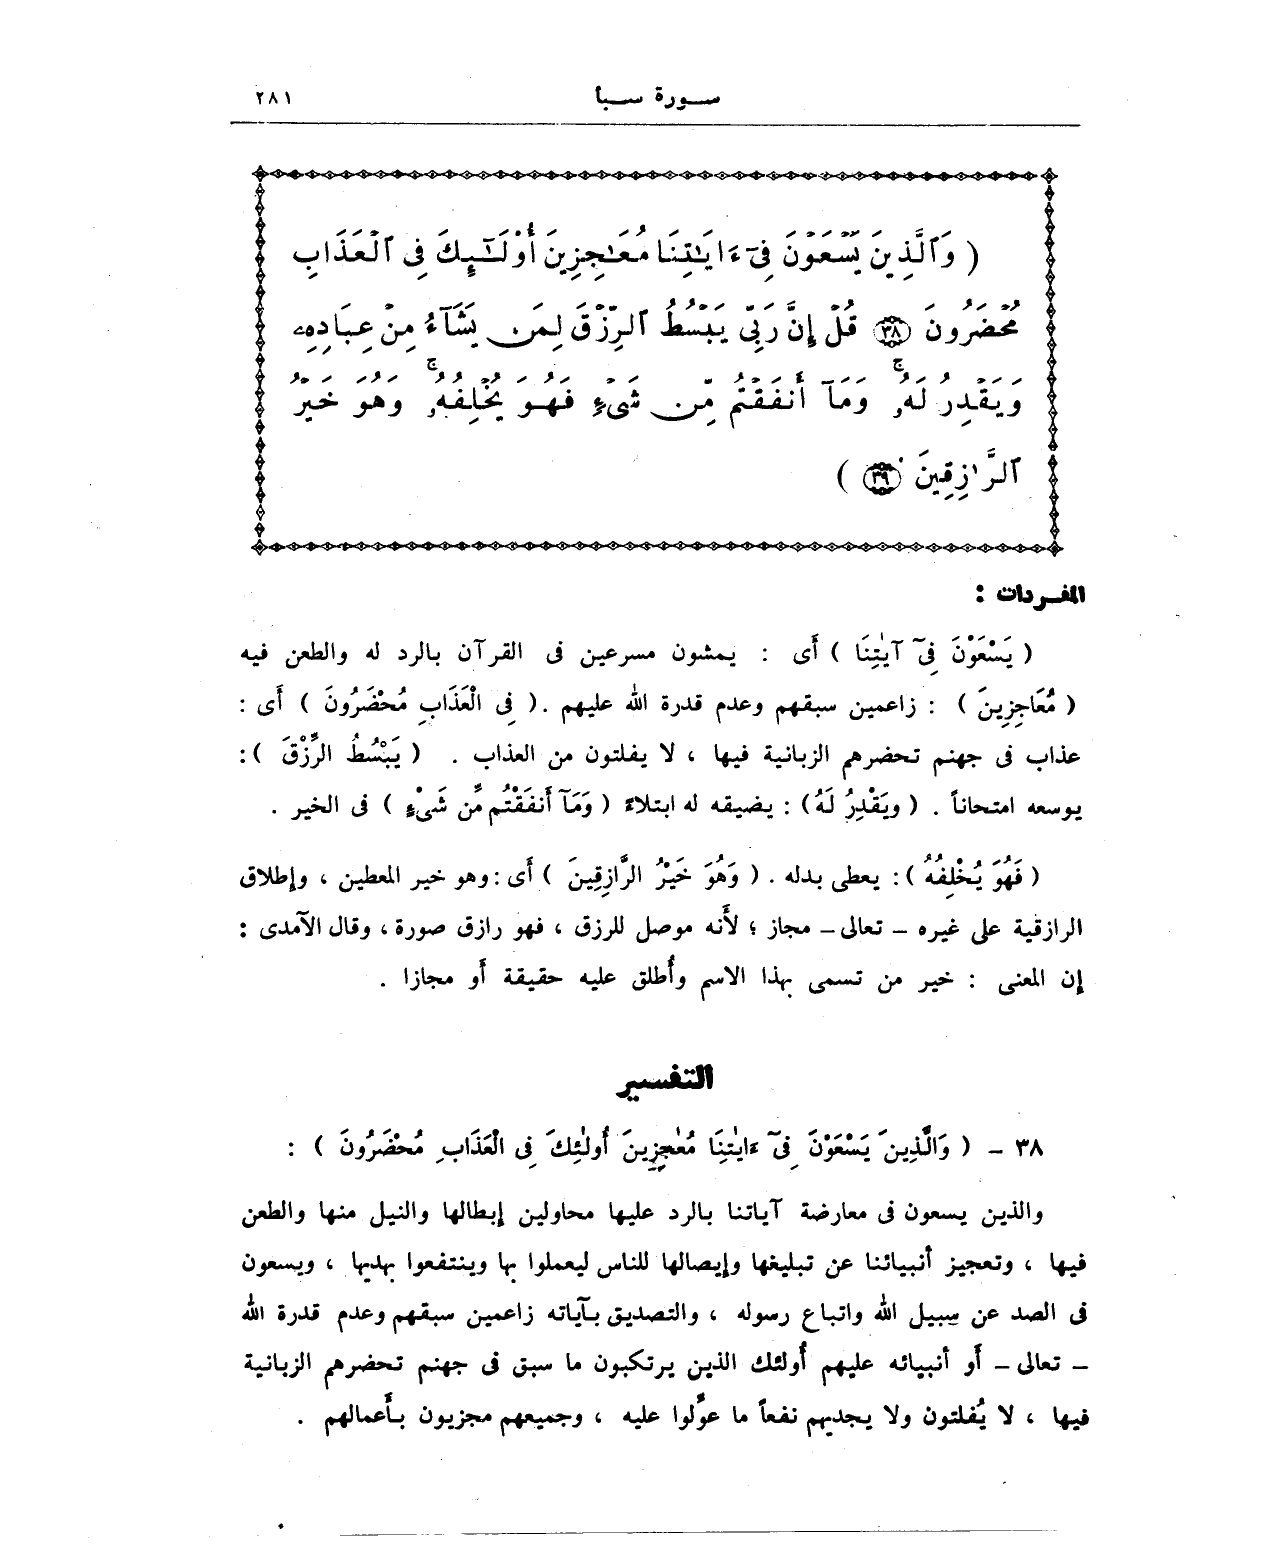 سورة سبأ ٢٨١
( وَٱلَّذِينَ يَسْعَوْنَ فِىٓ ءَايَـٰتِنَا مُعَـٰجِزِينَ أُوْلَـٰٓئِكَ فِى ٱلْعَذَابِ
مُحْضَرُونَ ٣٨ قُلْ إِنَّ رَبِّى يَبْسُطُ ٱلرِّزْقَ لِمَن يَشَآءُ مِنْ عِبَادِهِۦ
وَيَقْدِرُ لَهُۥۚ وَمَآ أَنفَقْتُم مِّن شَىْءٍ فَهُوَ يُخْلِفُهُۥۚ وَهُوَ خَيْرُ
ٱلرَّٰزِقِينَ ٣٩ )
المفردات :
( يَسْعَوْنَ فِىٓ آيَٰتِنَا ) أَى : يمشون مسرعين فى القرآن بالرد له والطعن فيه
( مُعَاجِزِينَ ) : زاعمين سبقهم وعدم قدرة الله عليهم . ( فِى الْعَذَابِ مُحْضَرُونَ ) أَى :
عذاب فى جهنم تحضرهم الزبانية فيها ، لا يفلتون من العذاب . ( يَبْسُطُ الرِّزْقَ ) :
يوسعه امتحاناً . ( ويَقْدِرُ لَهُ ) : يضيقه له ابتلاءً ( وَمَآ أَنفَقْتُم مِّن شَىْءٍ ) فى الخير .
( فَهُوَ يُخْلِفُهُ ) : يعطى بدله . ( وَهُوَ خَيْرُ الرَّازِقِينَ ) أَى : وهو خير المعطين ، وإطلاق
الرازقية على غيره – تعالى – مجاز ؛ لأَنه موصل للرزق ، فهو رازق صورة ، وقال الآمدى :
إن المعنى : خير من تسمى بهذا الاسم وأُطلق عليه حقيقة أَو مجازا .
التفسير
٣٨ – ( وَالَّذِينَ يَسْعَوْنَ فِىٓ ءَايٰتِنَا مُعٰجِزِينَ أُولٰئِكَ فِى الْعَذَابِ مُحْضَرُونَ ) :
والذين يسعون فى معارضة آياتنا بالرد عليها محاولين إبطالها والنيل منها والطعن
فيها ، وتعجيز أنبيائنا عن تبليغها وإيصالها للناس ليعملوا بها وينتفعوا بهديها ، ويسعون
فى الصد عن سبيل الله واتباع رسوله ، والتصديق بآياته زاعمين سبقهم وعدم قدرة الله
– تعالى – أَو أنبيائه عليهم أُولئك الذين يرتكبون ما سبق فى جهنم تحضرهم الزبانية
فيها ، لا يُفلتون ولا يجديهم نفعاً ما عوَّلوا عليه ، وجميعهم مجزيون بأَعمالهم .